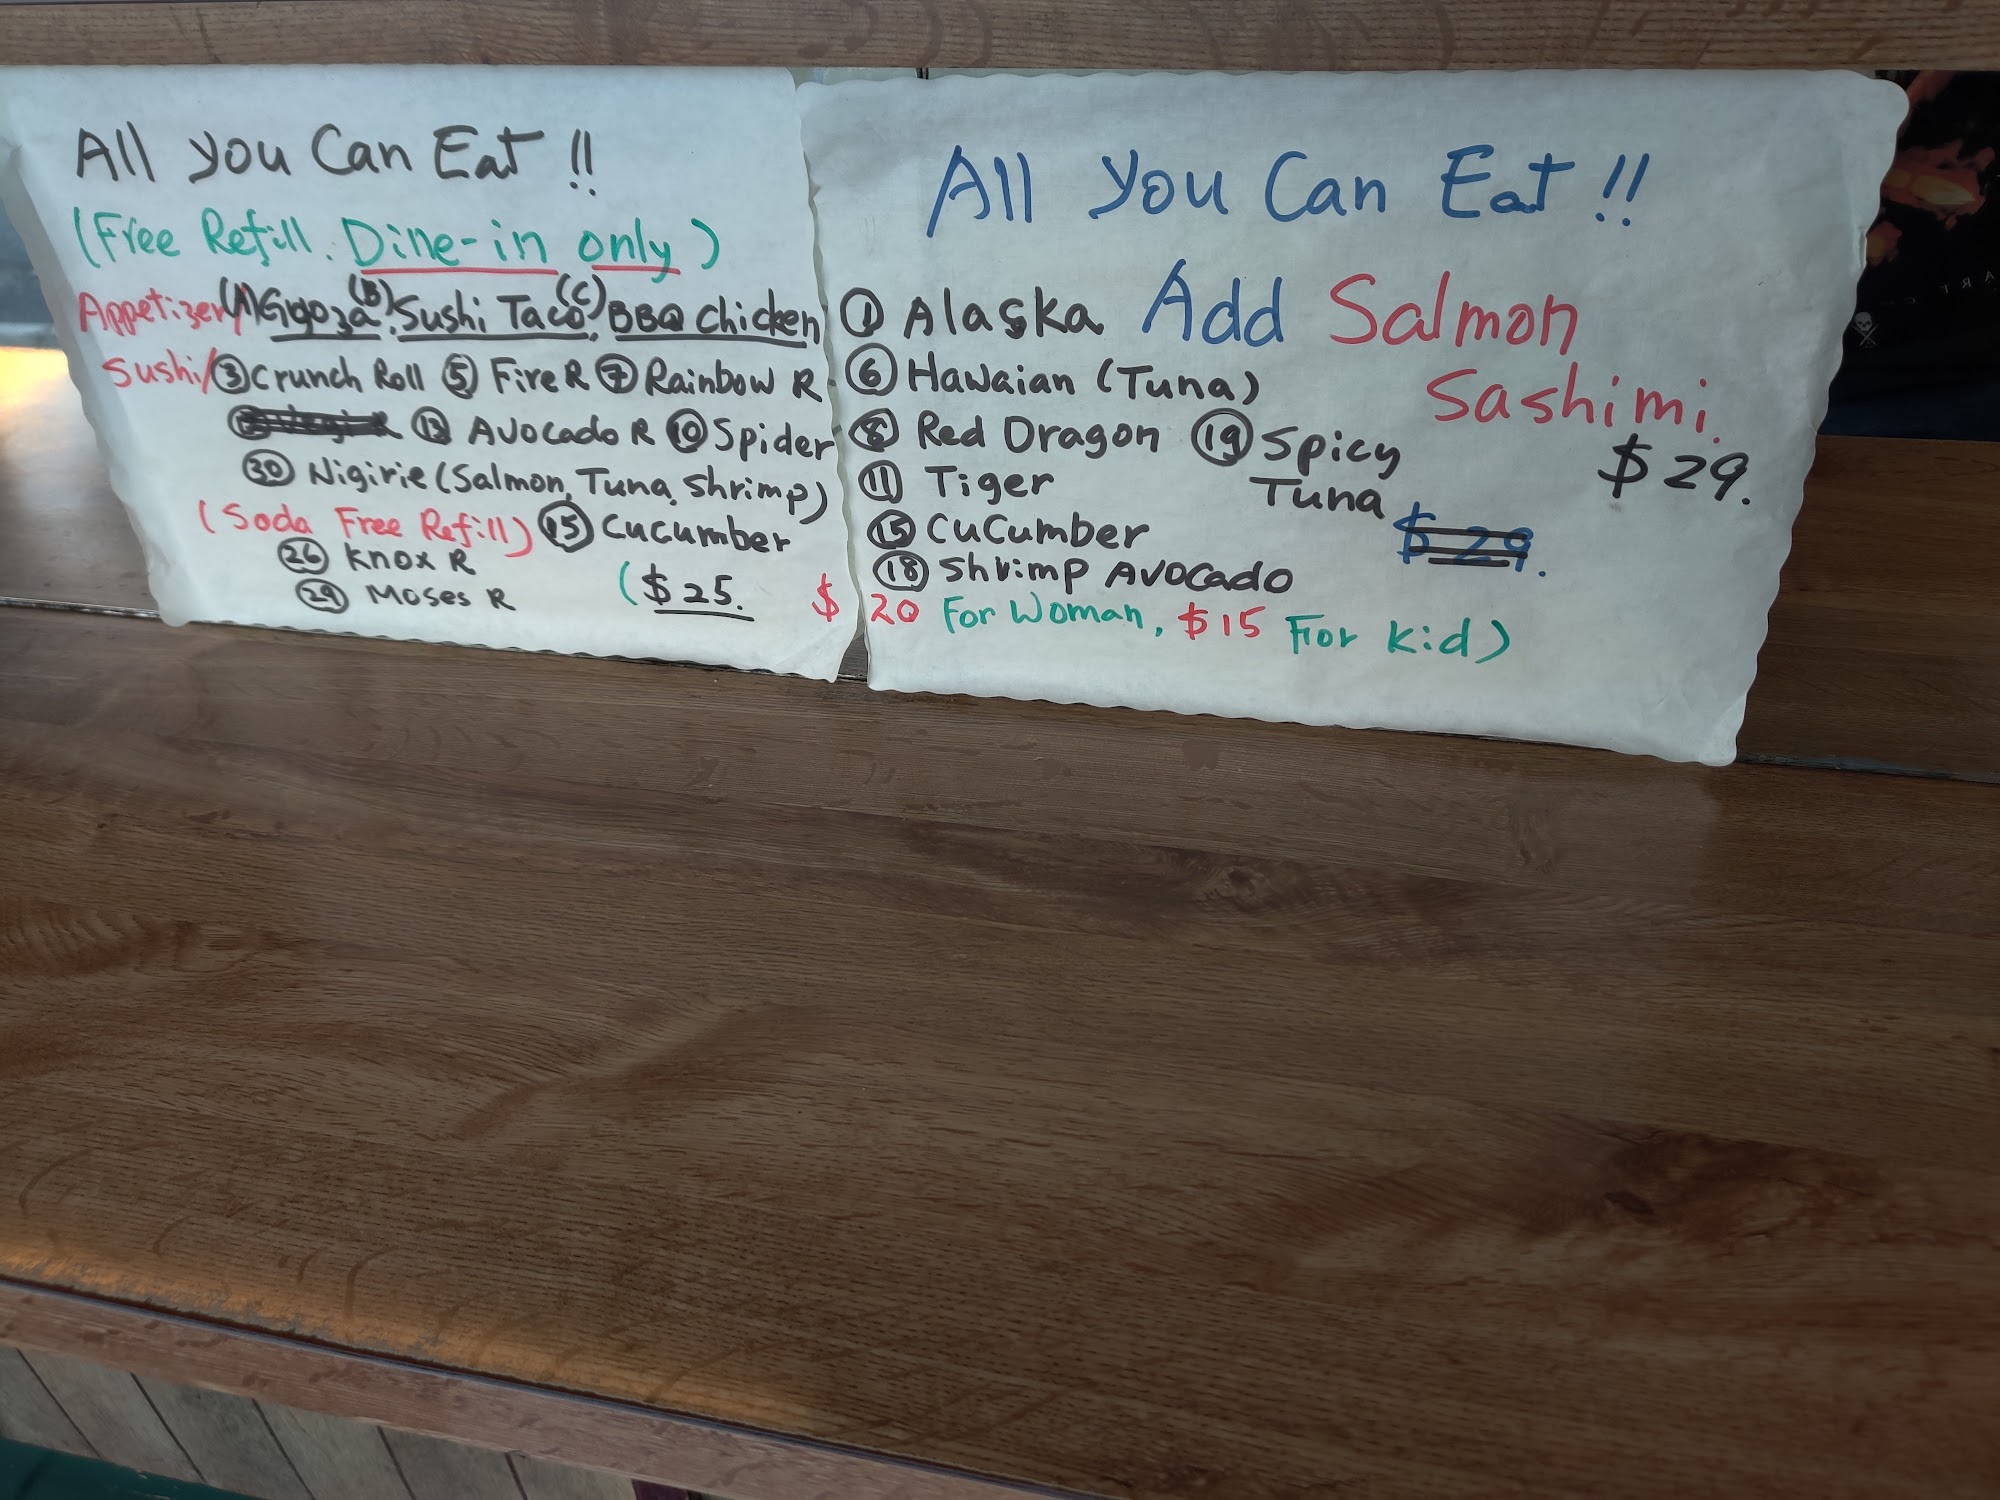 All You Can Eat !!
(Free Refill. Dine-in only)
Appetizer/(A)Gyoza (B).Sushi Taco (C), BBQ Chicken
Sushi/③Crunch Roll ⑤ Fire R ⑦ Rainbow R
⑬ Avocado R ⑩ Spider
㉚ Nigirie (Salmon, Tuna, Shrimp)
(Soda Free Refill) ⑮ Cucumber
㉖ Knox R
㉙ Moses R ($25.
All You Can Eat !!
① Alaska Add Salmon
Sashimi.
⑥ Hawaian (Tuna)
$29.
⑧ Red Dragon ⑲ Spicy
Tuna
⑪ Tiger
⑮ Cucumber $29.
⑱ Shrimp Avocado
$20 For Woman, $15 For Kid)